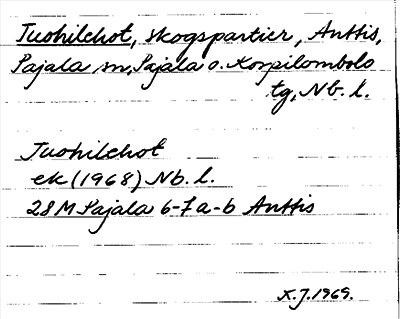 Tuohilehot, skogspartier, Anttis,
Pajala sn, Pajala o. Korpilombolo
tg, Nb. l.
Tuohilehot
ek (1968) Nb. l.
28M Pajala 6-7 a-b Anttis
K.J. 1969.